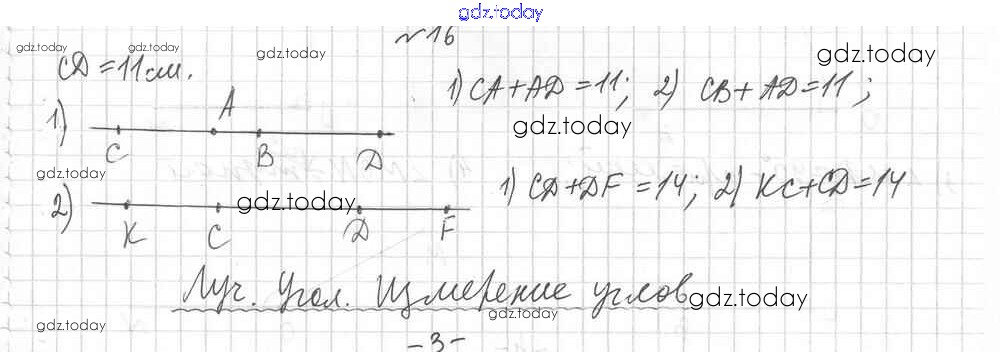 gdz.today
№16
gdz.today gdz.today gdz.today gdz.today
CD = 11 см.
1) CA + AD = 11; 2) CB + AD = 11;
gdz.today
1) C A B D
gdz.today
1) CD + DF = 14; 2) KC + CD = 14
2) K C D F
gdz.today
Луч. Угол. Измерение углов
gdz.today
gdz.today
gdz.today
-3-